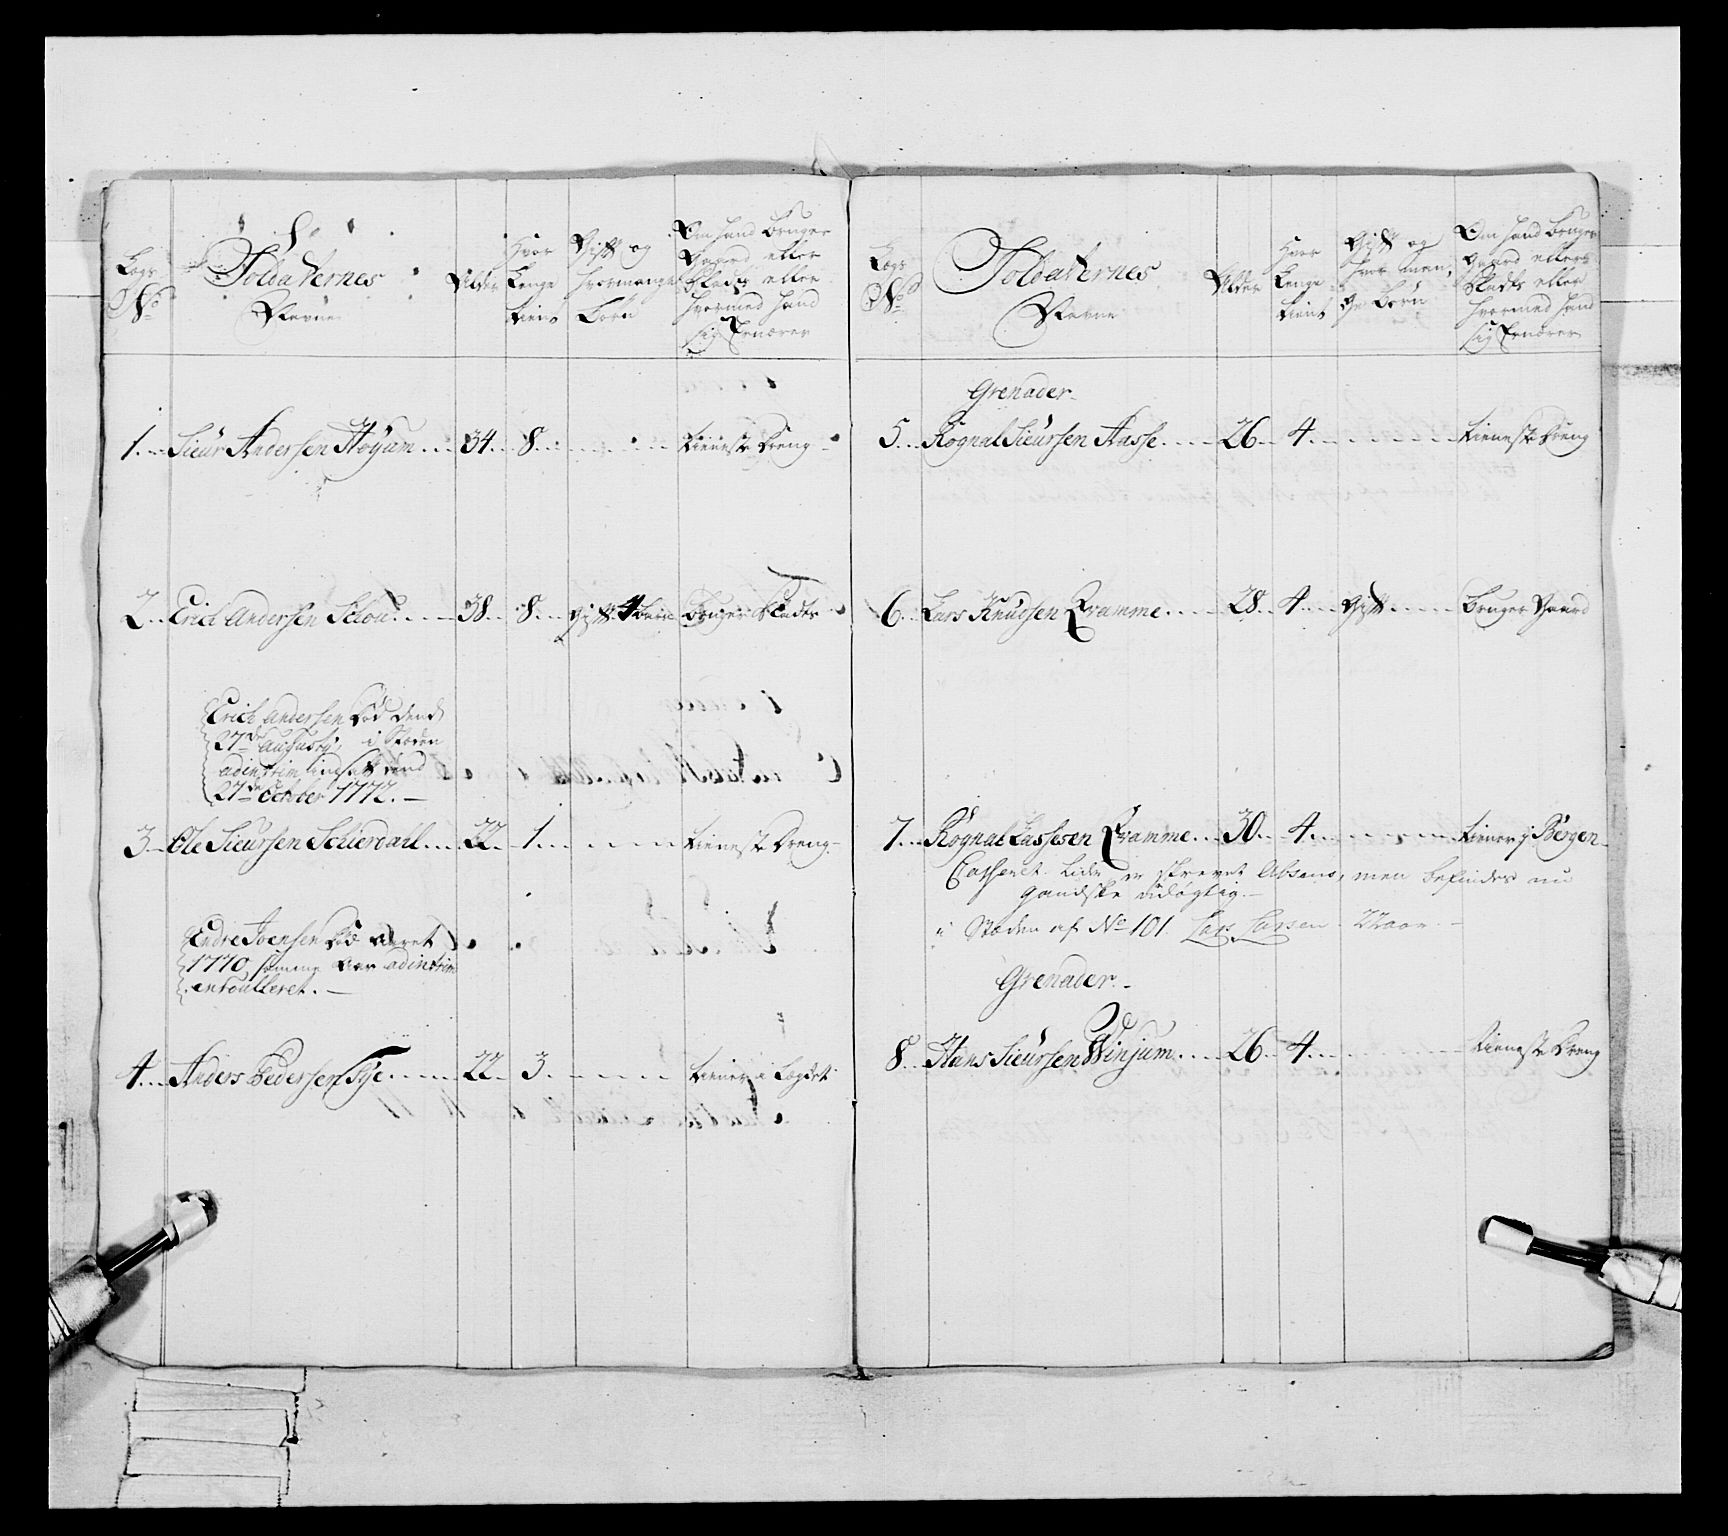 Legs No
Soldaternes Nafne
Alder
Hvor Lenge tient
Gift og hvormange Børn
Om hand bruger Gaard eller Pladtz eller hvormed hand sig Ernærer
1 Sieur Andersen Høyum 34 8 tieneste Dreng
2 Erich Andersen Schou 38 8 gift 4 børn bruger Pladts
Erich Andersen død dend
27de Augusty, i Steden
ad interim indsatt dend
27de October 1772.
3 Ole Sieursen Schierdahl 22 1 tieneste Dreng
Endre Joensen død Aaret
1770, samme Aar ad interim
enroulleret.
4 Anders Pedersen Tye 22 3 tiener i Legdet
Legs No
Soldaternes Nafne
Alder
Hvor Lenge tient
Gift og hvor mange Børn
Om hand bruger Gaard eller Pladts eller hvormed hand sig Ernærer
Grenader
5 Rognal Sieursen Aasse 26 4 tieneste Dreng
6 Lars Knudsen Qvamme 28 4 gift bruger Gaard
7 Rognal Lassesen Qvamme 30 4 tiener i Bergen
Casseret. er skrevet Absens, men befindes nu
gandske udøgtig.
i Steden af No 101 Lars Larsen 22 aar
Grenader
8 Hans Sieursen Winjum 26 4 tieneste Dreng